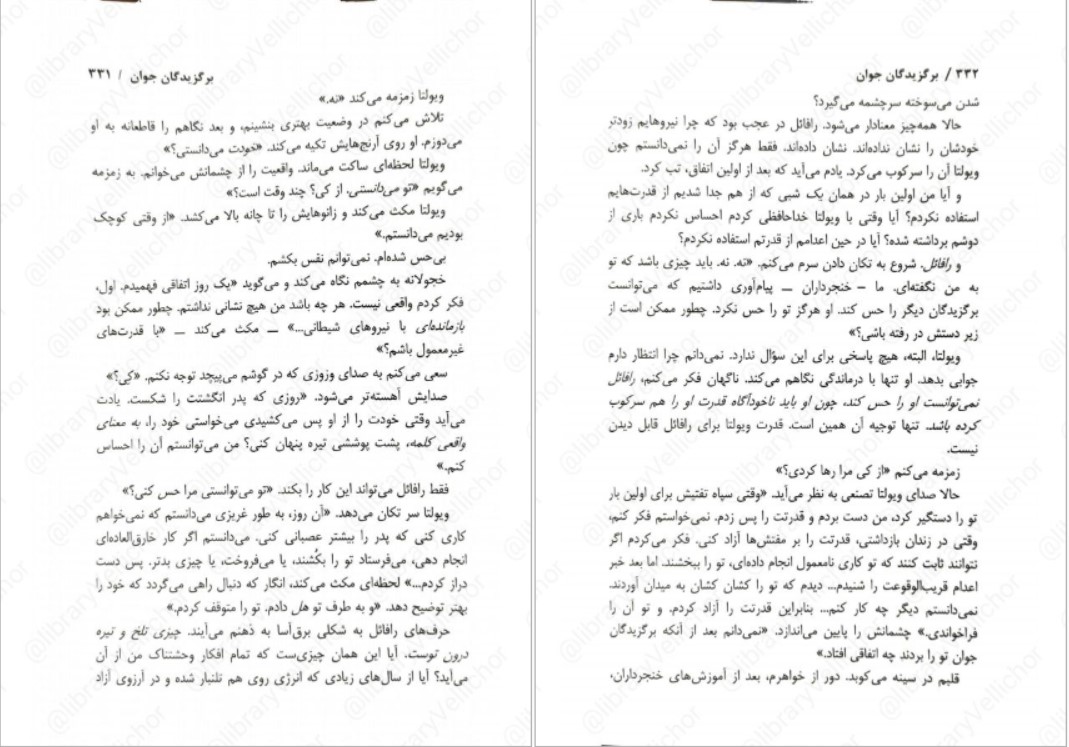 برگزیدگان جوان / ۳۳۱
ویولتا زمزمه می‌کند «نه.»
تلاش می‌کنم در وضعیت بهتری بنشینم، و بعد نگاهم را قاطعانه به او
می‌دوزم. او روی آرنج‌هایش تکیه می‌کند. «خودت می‌دانستی؟»
ویولتا لحظه‌ای ساکت می‌ماند. واقعیت را از چشمانش می‌خوانم. به زمزمه
می‌گویم «تو می‌دانستی. از کی؟ چند وقت است؟»
ویولتا مکث می‌کند و زانوهایش را تا چانه بالا می‌کشد. «از وقتی کوچک
بودیم می‌دانستم.»
بی‌حس شده‌ام. نمی‌توانم نفس بکشم.
خجولانه به چشمم نگاه می‌کند و می‌گوید «یک روز اتفاقی فهمیدم. اول،
فکر کردم واقعی نیست. هر چه باشد من هیچ نشانی نداشتم. چطور ممکن بود
بازمانده‌ای با نیروهای شیطانی...» ـ مکث می‌کند ـ «با قدرت‌های
غیرمعمول باشم؟»
سعی می‌کنم به صدای وزوزی که در گوشم می‌پیچد توجه نکنم. «کِی؟»
صدایش آهسته‌تر می‌شود. «روزی که پدر انگشتت را شکست. یادت
می‌آید وقتی خودت را از او پس می‌کشیدی می‌خواستی خود را، به معنای
واقعی کلمه، پشت پوششی تیره پنهان کنی؟ من می‌توانستم آن را احساس
کنم.»
فقط رافائل می‌تواند این کار را بکند. «تو می‌توانستی مرا حس کنی؟»
ویولتا سر تکان می‌دهد. «آن روز، به طور غریزی می‌دانستم که نمی‌خواهم
کاری کنی که پدر را بیشتر عصبانی کنی. می‌دانستم اگر کار خارق‌العاده‌ای
انجام دهی، می‌فرستاد تو را بکُشند، یا می‌فروخت، یا چیزی بدتر. پس دست
دراز کردم...» لحظه‌ای مکث می‌کند، انگار که دنبال راهی می‌گردد که خود را
بهتر توضیح دهد. «و به طرف تو هل دادم. تو را متوقف کردم.»
حرف‌های رافائل به شکلی برق‌آسا به ذهنم می‌آیند. چیزی تلخ و تیره
درون توست. آیا این همان چیزی‌ست که تمام افکار وحشتناک من از آن
می‌آید؟ آیا از سال‌های زیادی که انرژی روی هم تلنبار شده و در آرزوی آزاد
۳۳۲ / برگزیدگان جوان
شدن می‌سوخته سرچشمه می‌گیرد؟
حالا همه‌چیز معنادار می‌شود. رافائل در عجب بود که چرا نیروهایم زودتر
خودشان را نشان نداده‌اند. نشان داده‌اند. فقط هرگز آن را نمی‌دانستم چون
ویولتا آن را سرکوب می‌کرد. یادم می‌آید که بعد از اولین اتفاق، تب کرد.
و آیا من اولین بار در همان یک شبی که از هم جدا شدیم از قدرت‌هایم
استفاده نکردم؟ آیا وقتی با ویولتا خداحافظی کردم احساس نکردم باری از
دوشم برداشته شده؟ آیا در حین اعدامم از قدرتم استفاده نکردم؟
و رافائل. شروع به تکان دادن سرم می‌کنم. «نه. نه. باید چیزی باشد که تو
به من نگفته‌ای. ما – خنجرداران ـ پیام‌آوری داشتیم که می‌توانست
برگزیدگان دیگر را حس کند. او هرگز تو را حس نکرد. چطور ممکن است از
زیر دستش در رفته باشی؟»
ویولتا، البته، هیچ پاسخی برای این سؤال ندارد. نمی‌دانم چرا انتظار دارم
جوابی بدهد. او تنها با درماندگی نگاهم می‌کند. ناگهان فکر می‌کنم، رافائل
نمی‌توانست او را حس کند، چون او باید ناخودآگاه قدرت او را هم سرکوب
کرده باشد. تنها توجیه آن همین است. قدرت ویولتا برای رافائل قابل دیدن
نیست.
زمزمه می‌کنم «از کی مرا رها کردی؟»
حالا صدای ویولتا تصنعی به نظر می‌آید. «وقتی سپاه تفتیش برای اولین بار
تو را دستگیر کرد، من دست بردم و قدرتت را پس زدم. نمی‌خواستم فکر کنم،
وقتی در زندان بازداشتی، قدرتت را بر مفتش‌ها آزاد کنی. فکر می‌کردم اگر
نتوانند ثابت کنند که تو کاری نامعمول انجام داده‌ای، تو را ببخشند. اما بعد خبر
اعدام قریب‌الوقوعت را شنیدم... دیدم که تو را کشان کشان به میدان آوردند.
نمی‌دانستم دیگر چه کار کنم... بنابراین قدرتت را آزاد کردم. و تو آن را
فراخواندی.» چشمانش را پایین می‌اندازد. «نمی‌دانم بعد از آنکه برگزیدگان
جوان تو را بردند چه اتفاقی افتاد.»
قلبم در سینه می‌کوبد. دور از خواهرم، بعد از آموزش‌های خنجرداران،
@libraryVellichor